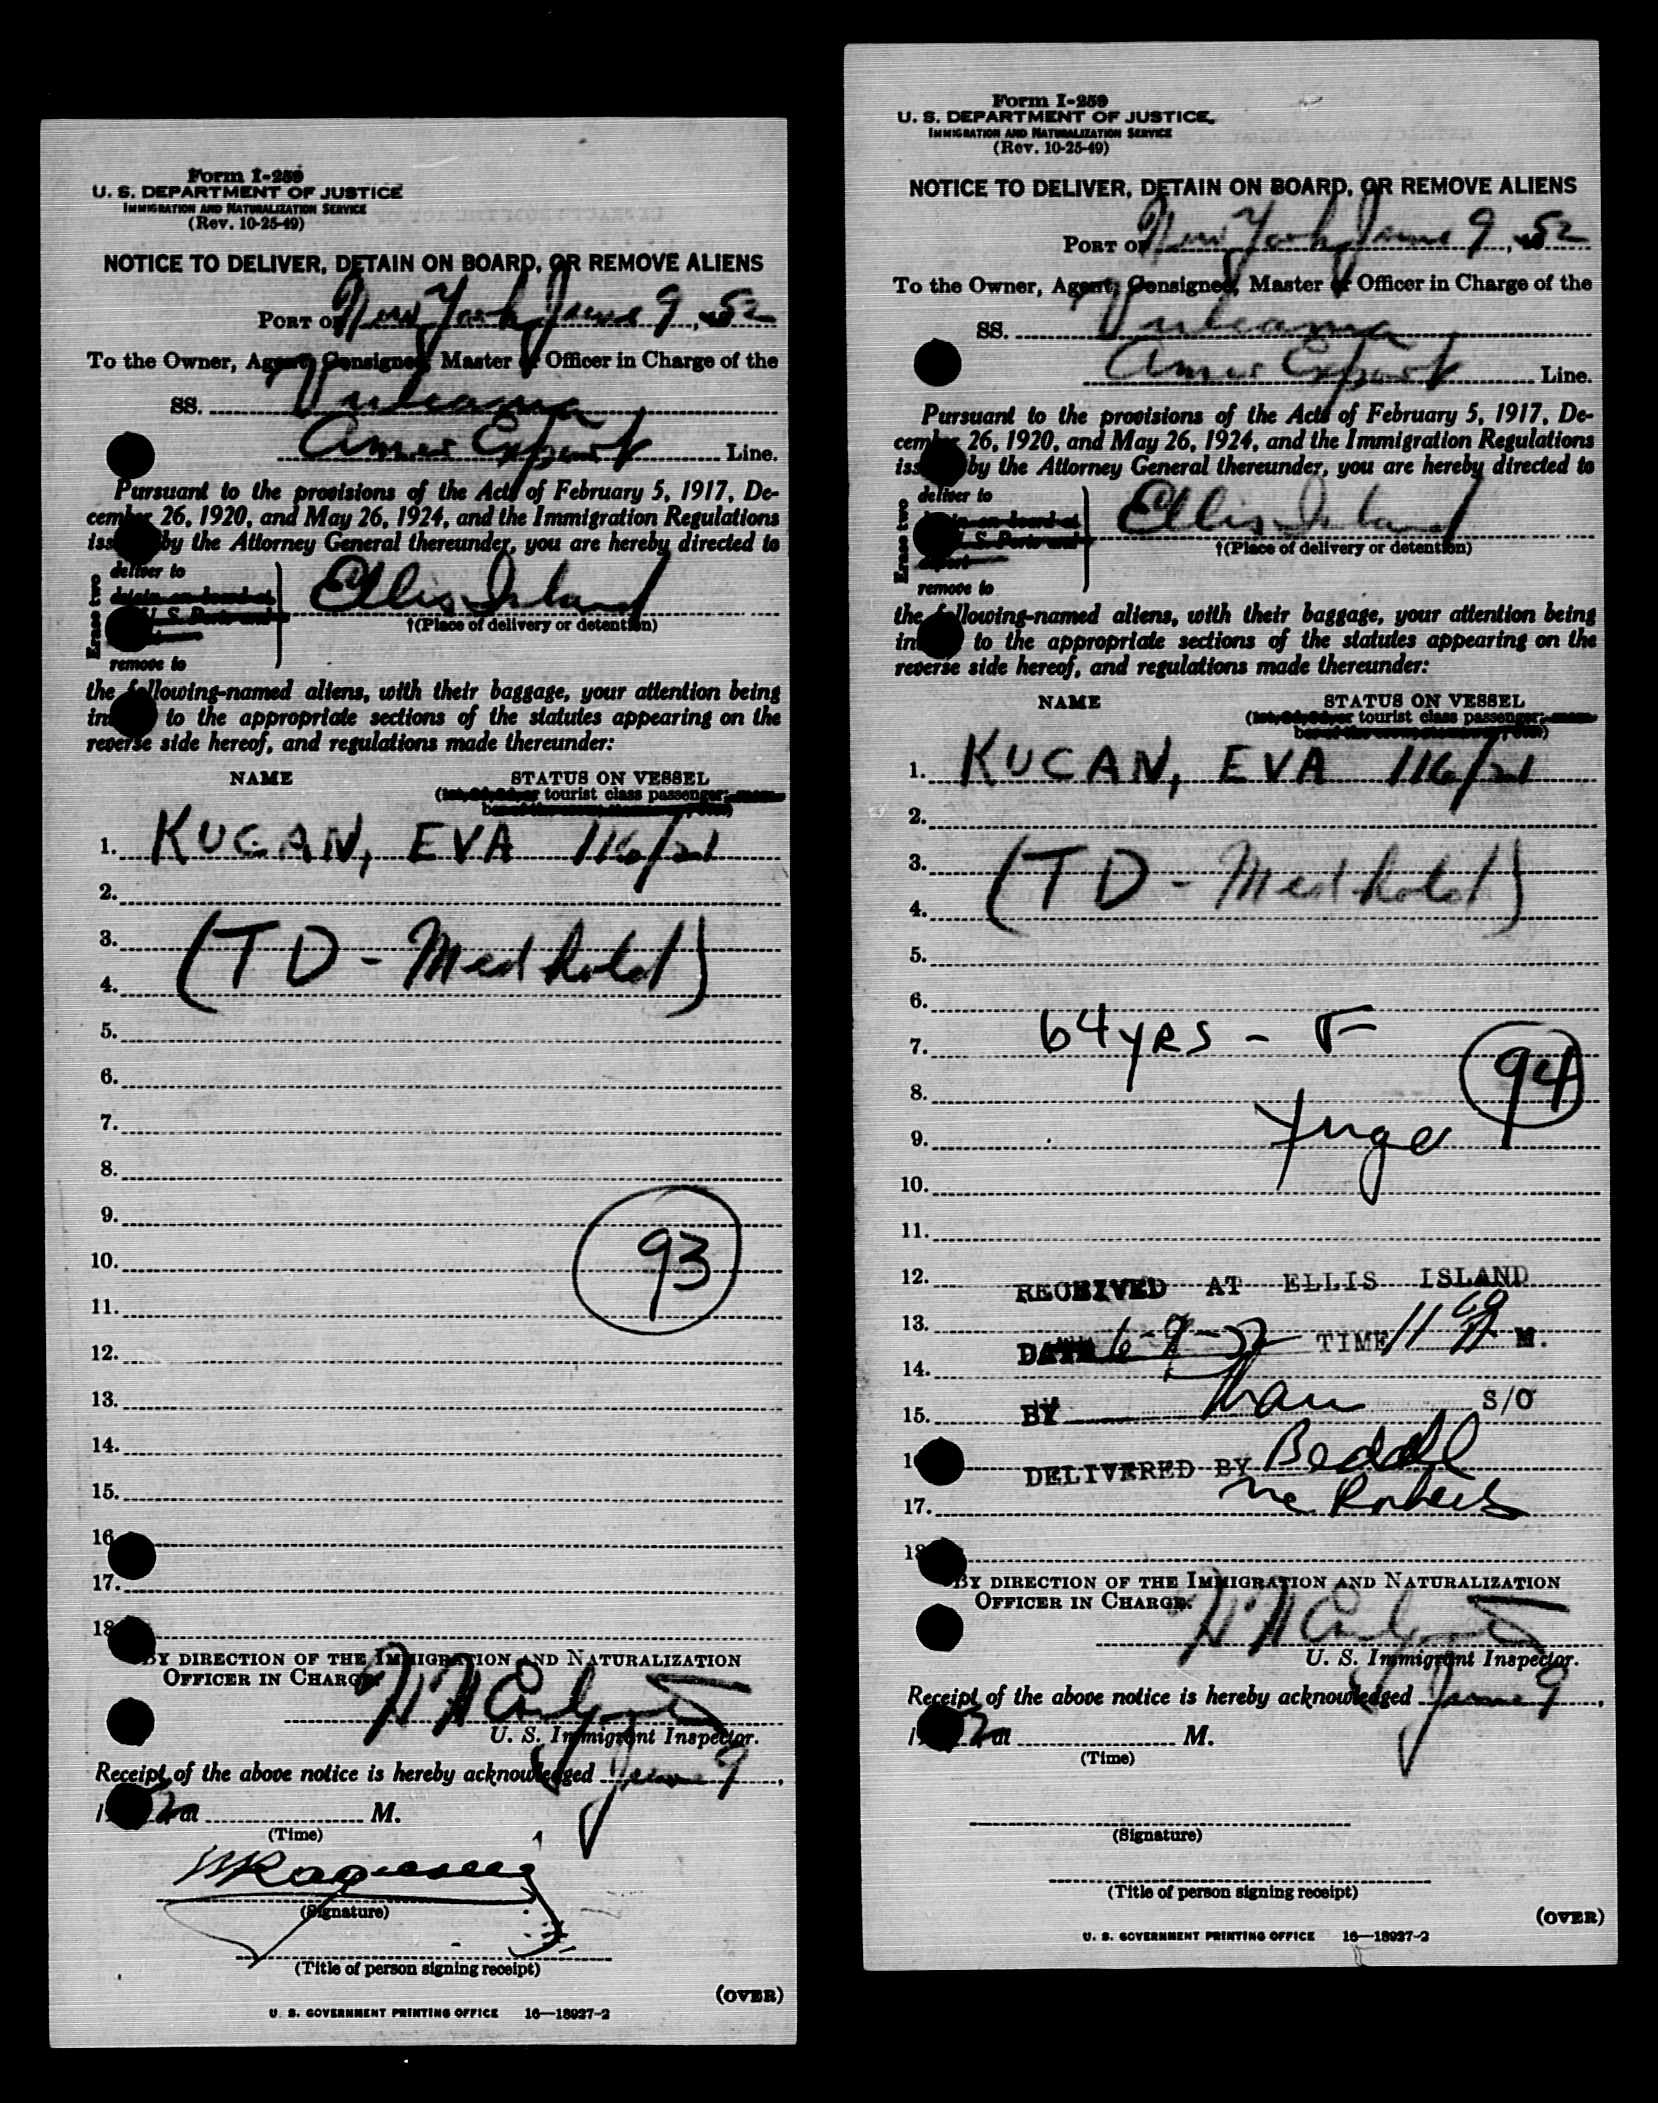 Form I-259
U. S. DEPARTMENT OF JUSTICE
IMMIGRATION AND NATURALIZATION SERVICE
(Rev. 10-25-49)
NOTICE TO DELIVER, DETAIN ON BOARD, OR REMOVE ALIENS
PORT OF New York June 9, 52
To the Owner, Agent, Consignee, Master or Officer in Charge of the
SS. Vulcania
Amer Export Line.
Pursuant to the provisions of the Acts of February 5, 1917, De-
cember 26, 1920, and May 26, 1924, and the Immigration Regulations
iss by the Attorney General thereunder, you are hereby directed to
Erase two
deliver to
detain on board at
U. S. Ports and
remove to
Ellis Island
†(Place of delivery or detention)
the following-named aliens, with their baggage, your attention being
in to the appropriate sections of the statutes appearing on the
reverse side hereof, and regulations made thereunder:
NAME STATUS ON VESSEL
tourist class passenger;
1. KUCAN, EVA 116/21
2.
3. (TD - Med hold)
4.
5.
6.
7.
8.
9.
93
10.
11.
12.
13.
14.
15.
16
17.
18
BY DIRECTION OF THE IMMIGRATION AND NATURALIZATION
OFFICER IN CHARGE.
U. S. Immigrant Inspector.
Receipt of the above notice is hereby acknowledged June 9,
1 2 at M.
(Time)
(Signature)
(Title of person signing receipt)
(OVER)
U. S. GOVERNMENT PRINTING OFFICE 16—18927-2
Form I-259
U. S. DEPARTMENT OF JUSTICE
IMMIGRATION AND NATURALIZATION SERVICE
(Rev. 10-25-49)
NOTICE TO DELIVER, DETAIN ON BOARD, OR REMOVE ALIENS
PORT OF New York June 9, 52
To the Owner, Agent, Consignee, Master or Officer in Charge of the
SS. Vulcania
Amer Export Line.
Pursuant to the provisions of the Acts of February 5, 1917, De-
cember 26, 1920, and May 26, 1924, and the Immigration Regulations
iss by the Attorney General thereunder, you are hereby directed to
Erase two
deliver to
detain on board at
U. S. Ports and
export
remove to
Ellis Island
†(Place of delivery or detention)
the following-named aliens, with their baggage, your attention being
in to the appropriate sections of the statutes appearing on the
reverse side hereof, and regulations made thereunder:
NAME STATUS ON VESSEL
tourist class passenger;
1. KUCAN, EVA 116/21
2.
3. (TD - Med hold)
4.
5.
6.
7. 64 YRS - F
94
8.
9. Yugo
10.
11.
12. RECEIVED AT ELLIS ISLAND
13. DATE 6-9-52 TIME 11 M.
14.
15. BY S/O
1 DELIVERED BY Beddell
17. Mc Roberts
18
BY DIRECTION OF THE IMMIGRATION AND NATURALIZATION
OFFICER IN CHARGE.
U. S. Immigrant Inspector.
Receipt of the above notice is hereby acknowledged June 9,
1 2 at M.
(Time)
(Signature)
(Title of person signing receipt)
(OVER)
U. S. GOVERNMENT PRINTING OFFICE 16—18927-2